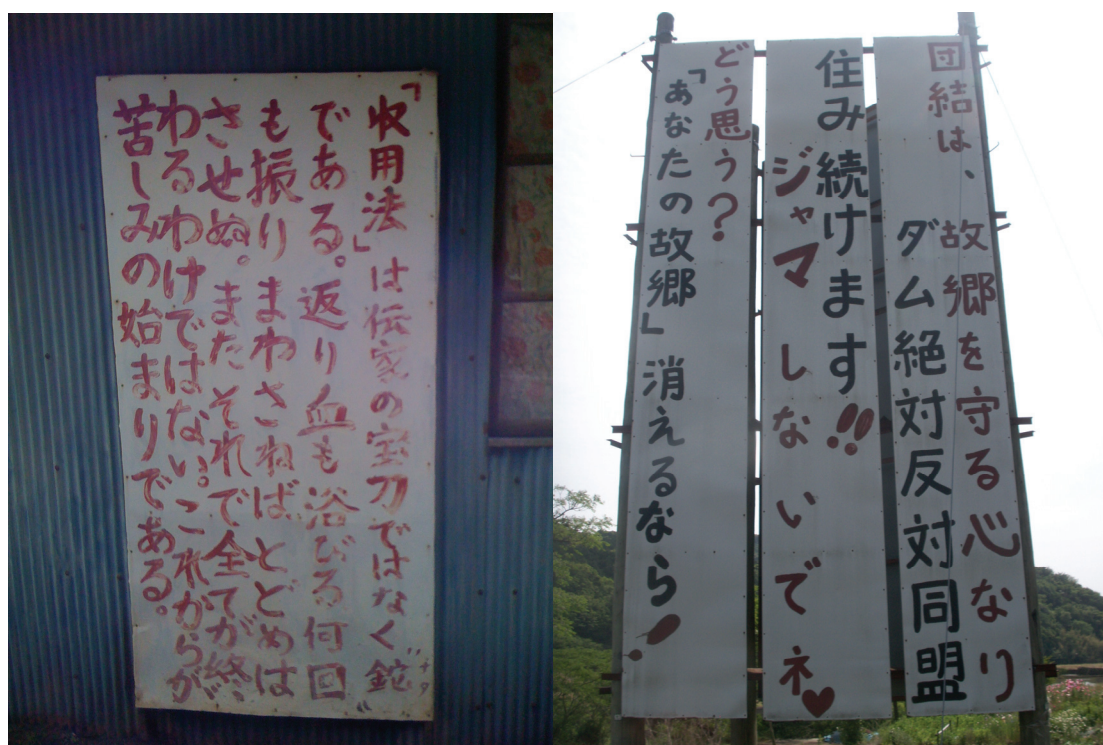 「収用法」は伝家の宝刀ではなく"鉈"
ナタ
である。返り血も浴びる何回
も振りまわさねばとどめは
させぬ。またそれで全てが終
わるわけではない。これからが
苦しみの始まりである。
団結は、故郷を守る心なり
ダム絶対反対同盟
住み続けます!!
ジャマしないでネ♥
どう思う?
「あなたの故郷」消えるなら!